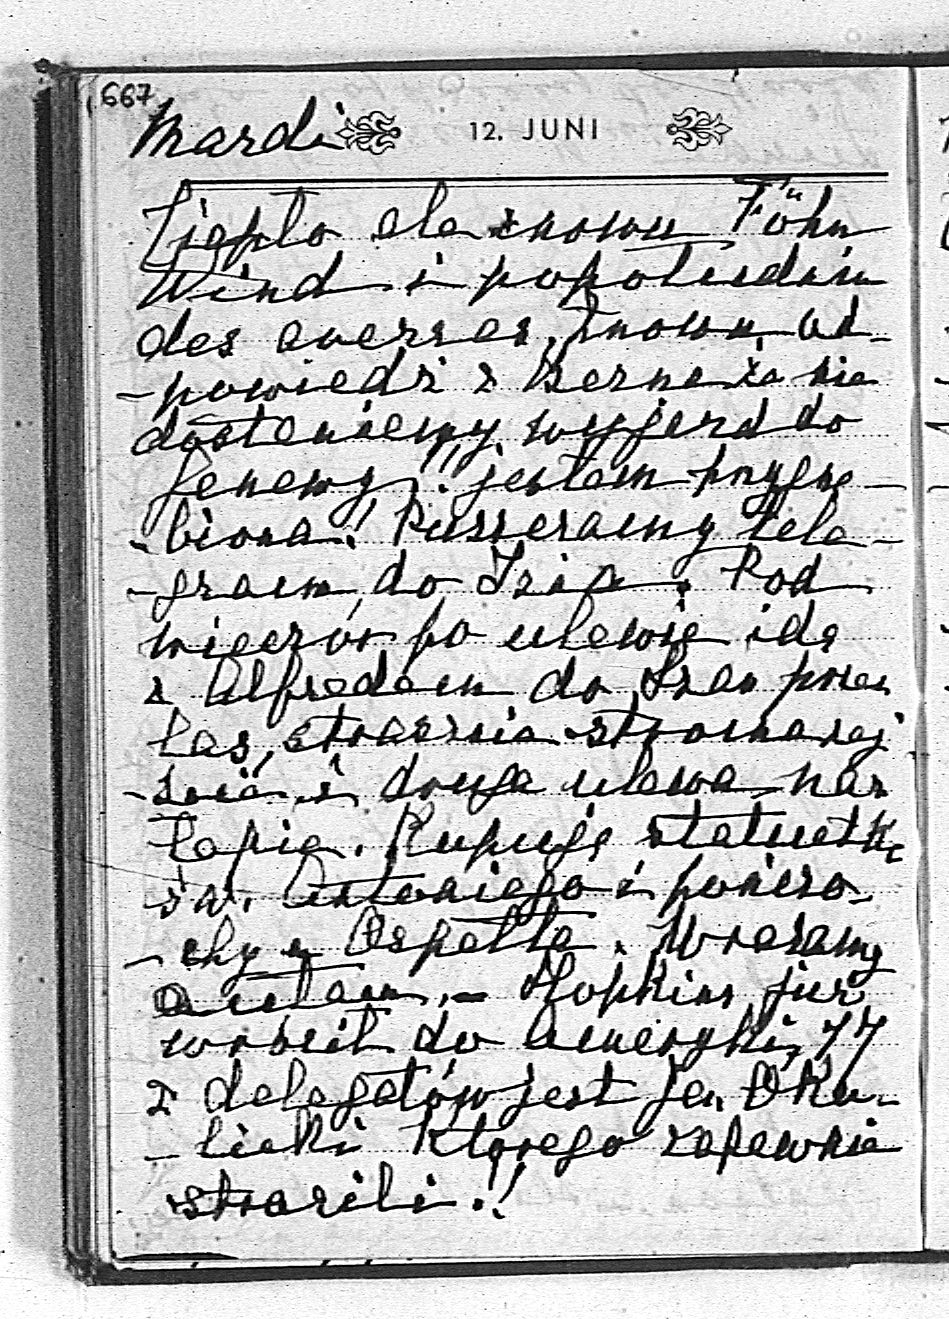 667
Mardi 12. JUNI
Ciepło ale znowu Föhn
Wind i popołudniu
des averses. Znowu od-
-powiedź z Berna że nie
dostaniemy wyjazd do
Genewy!! jestem przygnę-
-biona! Puszczamy tele-
-gram do Izia. Pod
wieczór po ulewie idę
z Alfredem do Gran przez
las, strasznie stromą
i druga ulewa nas
łapie. Kupuję statuetkę
św. Antoniego i pończo-
-chy u Bespalta. Wracamy
autem. – Hopkins już
wrócił do Ameryki, 17
z delegatów jest jen. Oku-
-licki którego zapewnie
stracili!!